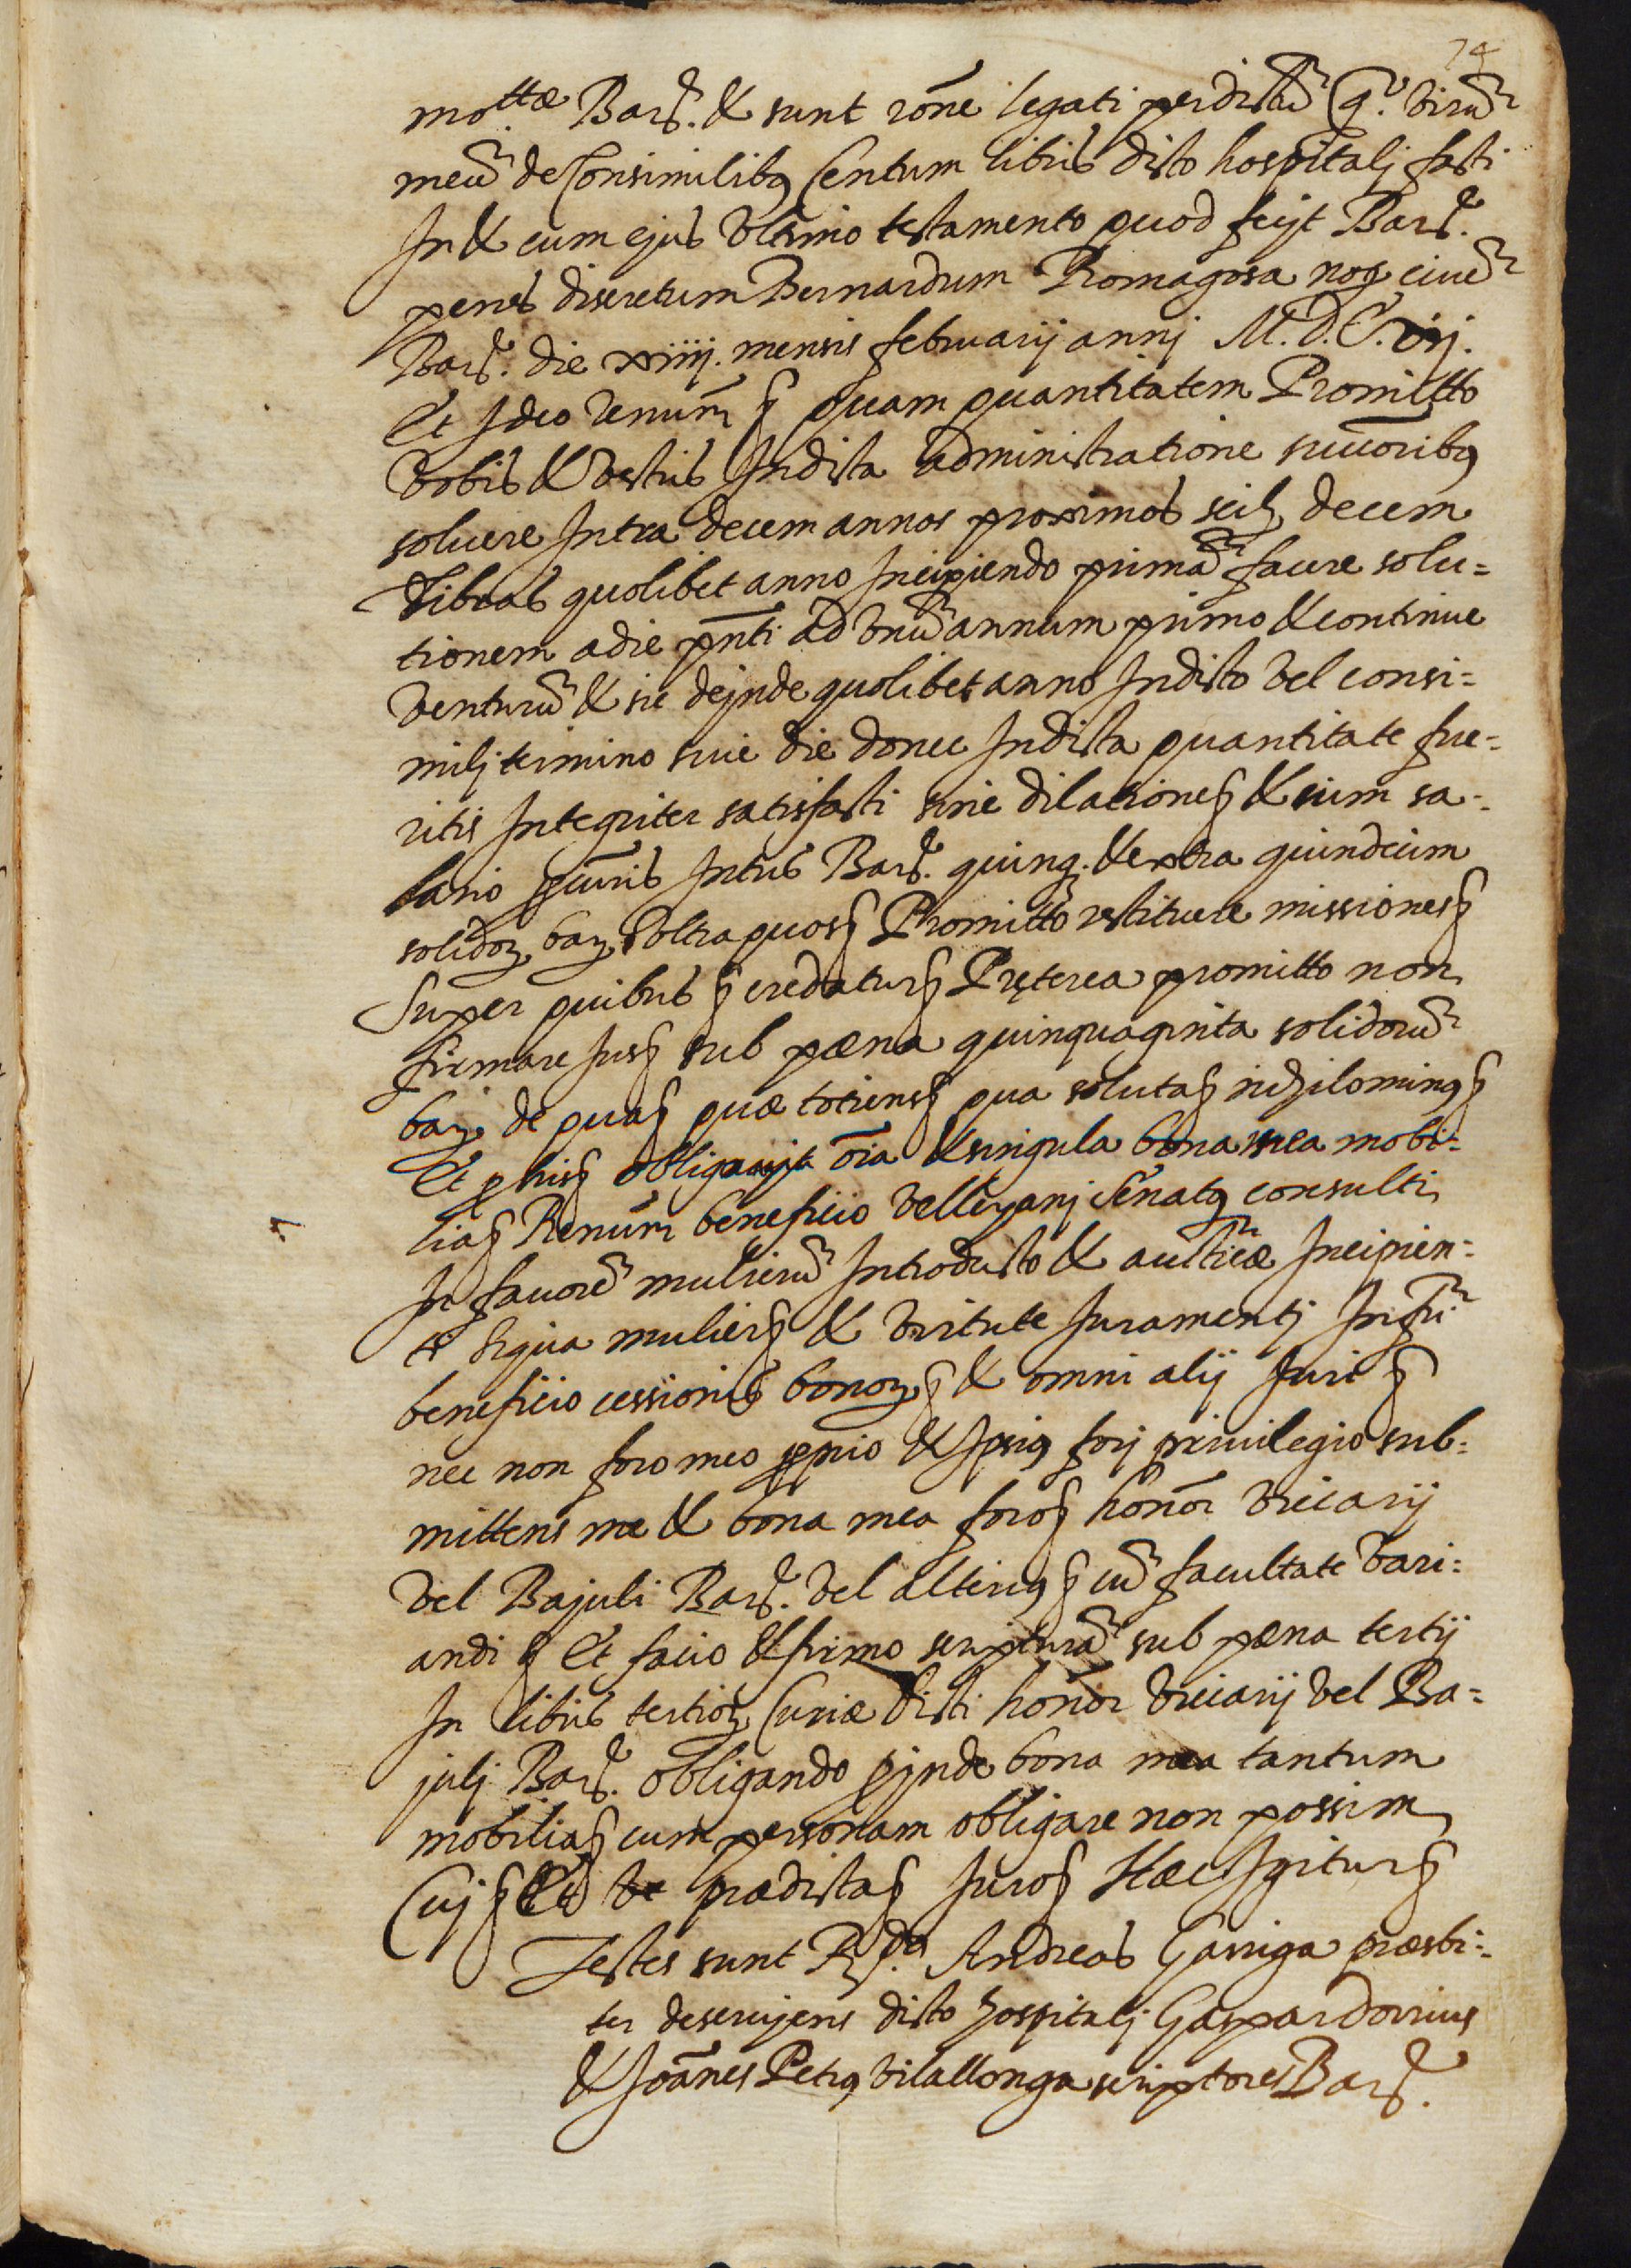 74
mo.ttæ Barñ. & sunt rõne legati per dictũ q.º virũ
meũ de Consimilibꝫ Centum libris dicto hospitalj facti
In & cum ejus vltimo testamento quod fecyt Barñ.
penes discretum Bernardum Romagosa noỹ ciuẽ
Barñ. die xiiij. mensis februarij annj M.D.C.vij.
Et Ideo renum̃ ꝭ quam quantitatem Promitto
vobis & vestris In dicta administratione succoribꝫ
soluere Intra decem annos proximos scilꝫ decem
libras quolibet anno Incipiendo primã facere solu=
tionem a die pñti ad vnũ annum primo & continue
venturũ & sic dejnde quolibet anno In dicto vel consi=
milj termino siue die donec In dicta quantitate fue=
ritis Integriter satisfacti sine dilationeꝭ & cum sa=
lario pcuris Intus Barñ. quinqꝫ & extra quindecim
solidoꝝ baꝝ vltra quosꝭ Promitto restituere missionesꝭ
Super quibus ꝭ credaturꝭ Pręterea promitto non
firmare Jusꝭ sub pœna quinquaginta solidorũ
baꝝ de quaꝭ quæ totiensꝭ qua solutaꝭ nihilominꝫꝭ
Et ꝓ hisꝭ obligo õia & singula bona mea mobi=
liaꝭ Renum̃ beneficio velleyanj Senatꝫ consulti
In fauorẽ mulierũ Introducto & autticæ Incipien=
te siqua mulierꝭ & virtute Juramentj Infrĩ
beneficio cessionis bonoꝝꝭ & omni alij Juri ꝭ
nec non foro meo ꝓprio & Ipsiꝫ forj priuilegio sub=
mittens me & bona mea foroꝭ honor̃ vicarij
vel Bajuli Barñ. vel alteriꝫ ꝭ cũ facultate vari=
andi ꝭ Et facio & firmo scripturã sub pœna tertij
In libris tertioꝝ Curiæ dicti honor̃ vicarij vel Ba=
julj Barñ. obligando ꝓjnde bona mea tantum
mobiliaꝭ cum personam obligare non possim
Cuj ꝭ Et vt prædictaꝭ Juroꝭ Hæc Igiturꝭ
Testes sunt Rꝫdꝰ Andreas Garriga præsbi=
ter deseruyens dicto hospitalj Gaspar Dorrius
& Joãnes Petrꝫ vilallonga scriptores Barñ.